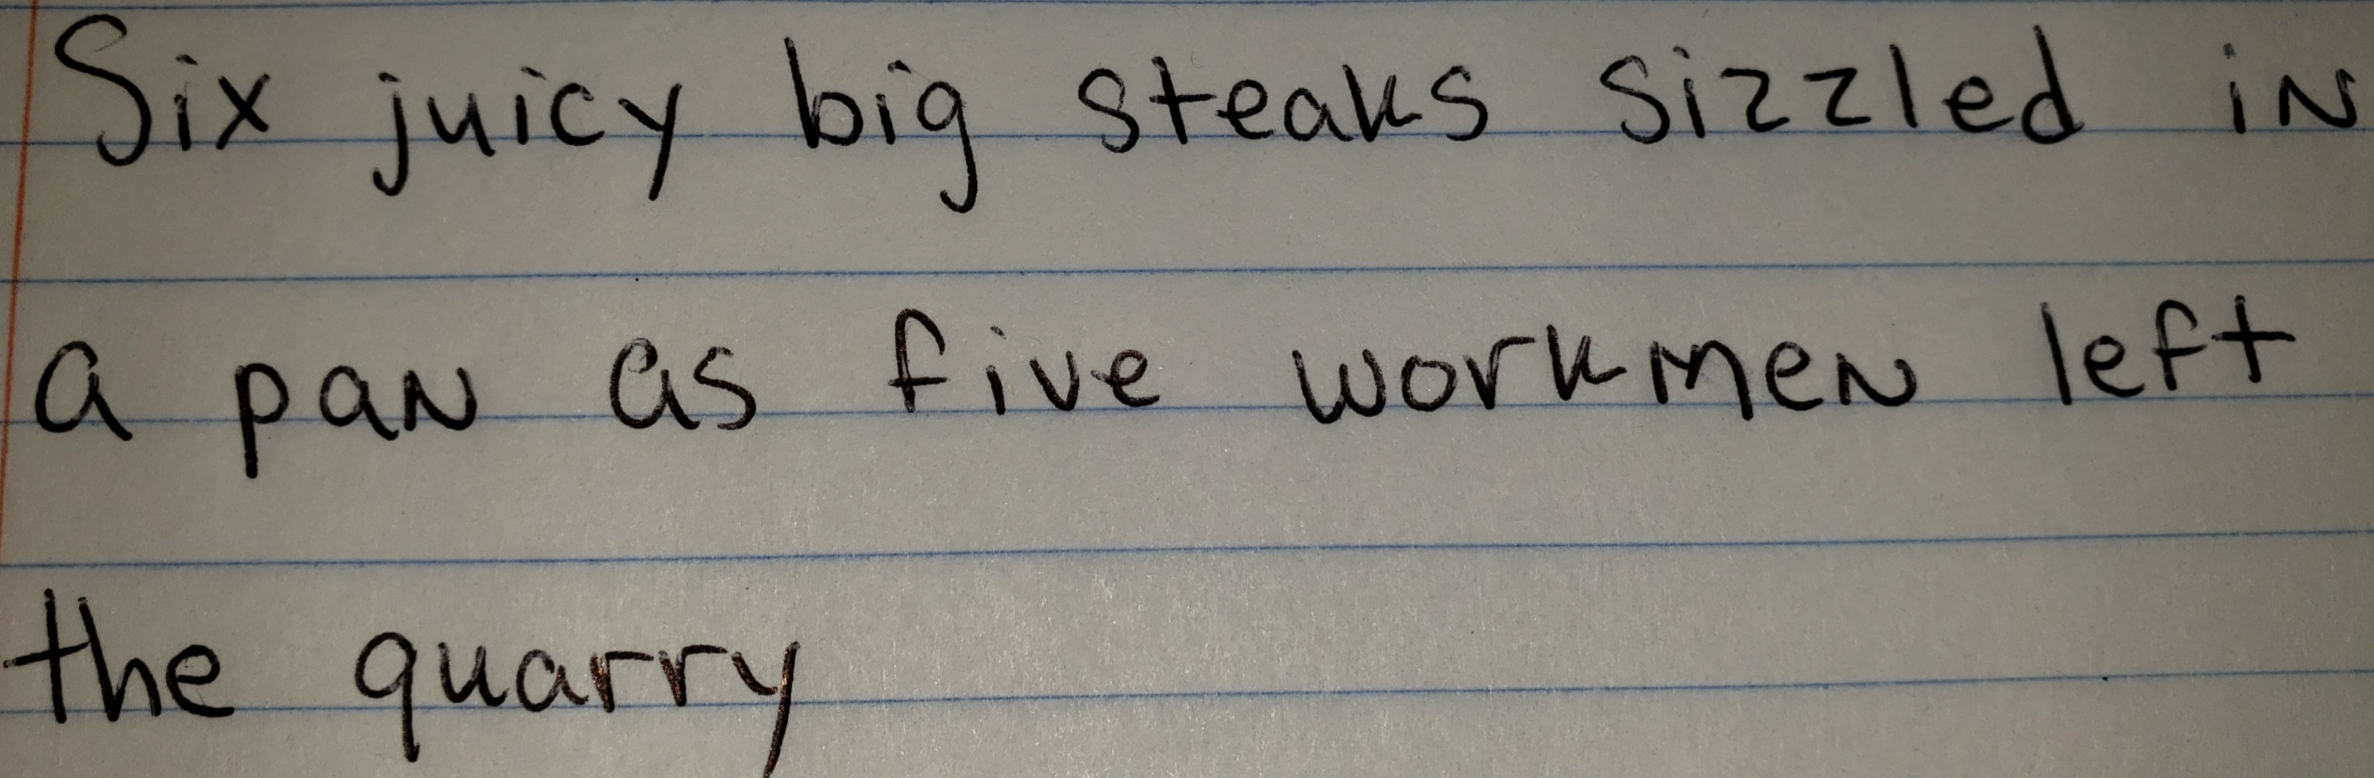 Six juicy big steaks sizzled in
a pan as five workmen left
the quarry